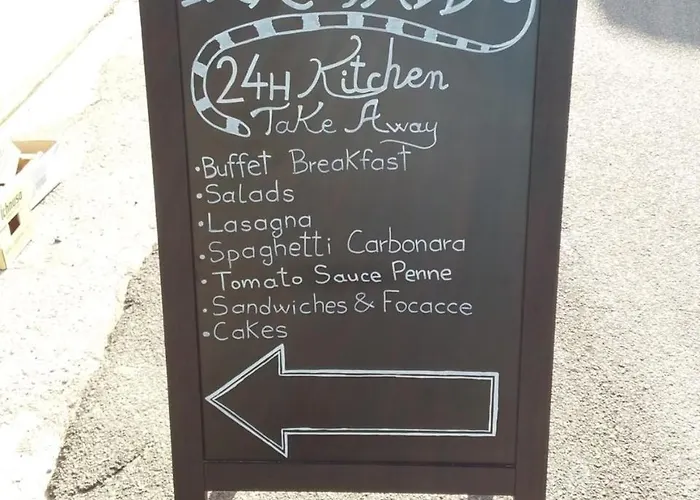 24H Kitchen
Take Away
•Buffet Breakfast
•Salads
•Lasagna
•Spaghetti Carbonara
•Tomato Sauce Penne
•Sandwiches & Focacce
•Cakes
Ichnusa